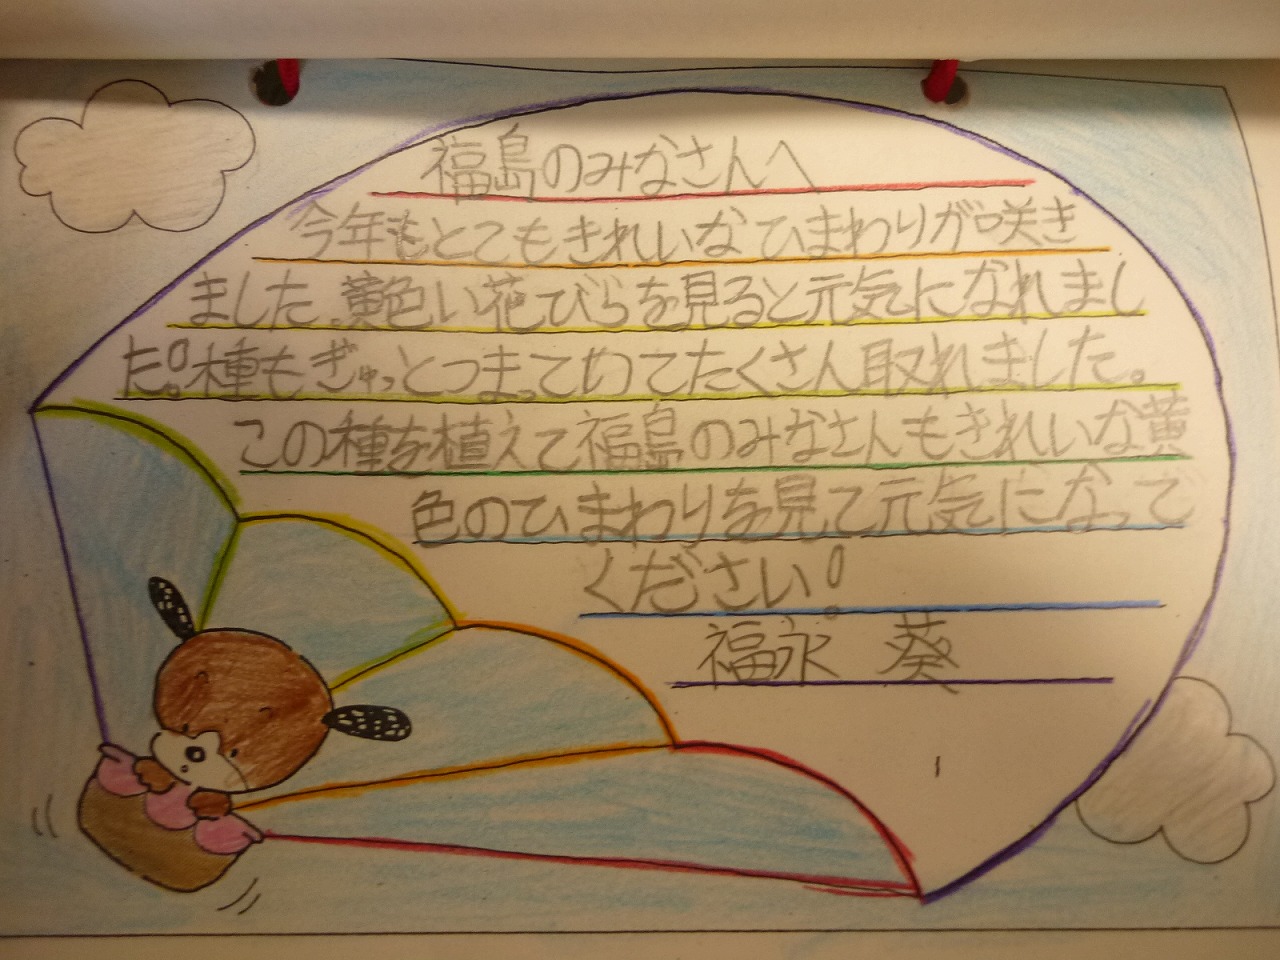 福島のみなさんへ
今年もとてもきれいなひまわりが咲き
ました。黄色い花びらを見ると元気になれまし
た!種もぎゅっとつまっていてたくさん取れました。
この種を植えて福島のみなさんもきれいな黄
色のひまわりを見て元気になって
ください!
福永 葵